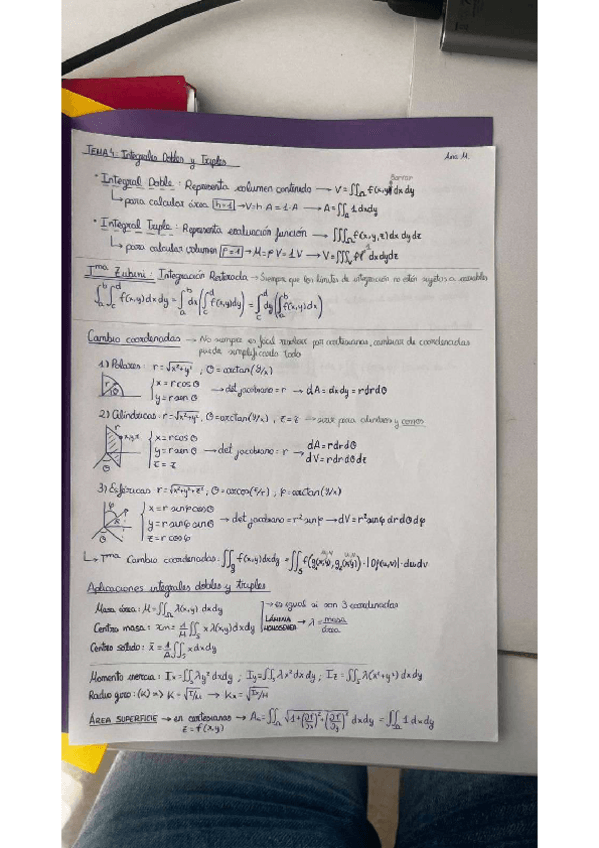 TEMA 4: Integrales Dobles y Triples
Ana M.
· Integral Doble: Representa volumen contenido → V=∬_Ω f(x,y) dxdy
Borrar
↳ para calcular área h=1 → V=h·A=1·A → A=∬_Ω 1dxdy
· Integral Triple: Representa evaluación función → ∭_Ω f(x,y,z) dx dy dz
↳ para calcular volumen ρ=1 → M=ρV=1V → V=∭
Tma Fubini: Integración Reiterada → Siempre que los límites de integración no estén sujetos a variables
∫_a^b∫_c^d f(x,y)dxdy = ∫_a^b dx(∫_c^d f(x,y)dy) = ∫_c^d dy(∫_a^b f(x,y)dx)
Cambio coordenadas → No siempre es fácil resolver por cartesianas, cambiar de coordenadas
puede simplificarlo todo
1) Polares: r=√x²+y², θ=arctan(y/x)
{x=rcosθ
y=rsenθ → det jacobiano=r → dA=dxdy=rdrdθ
2) Cilíndricas: r=√x²+y², θ=arctan(y/x), z=z → para cilindros y conos
{x=rcosθ
y=rsenθ → det jacobiano: r → dA=rdrdθ
z=z dV=rdrdθdz
3) Esféricas r=√x²+y²+z², θ=arcos(z/r), φ=arctan(y/x)
{x=rsenφcosθ
y=rsenφsenθ → det jacobiano=r²senφ → dV=r²senφdrdθdφ
z=rcosφ
↳ Tma Cambio coordenadas: ∬_S f(x,y)dxdy = ∬_S f(g₁(u,v), g₂(u,v))·|Df(u,v)|·dudv
Aplicaciones integrales dobles y triples
Masa área: M=∬_Ω λ(x,y) dxdy
→ es igual si son 3 coordenadas
Centro masa: xm=1/M ∬_S xλ(x,y)dxdy
LÁMINA HOMOGÉNEA → λ=masa/área
Centro sólido: x̄=1/A ∬_S xdxdy
Momento inercia: Ix=∬_S λy²dxdy ; Iy=∬_S λx²dxdy ; Iz=∬_S λ(x²+y²)dxdy
Radio giro: (K) => K=√I/M → Kx=√Ix/M
ÁREA SUPERFICIE → en cartesianas → A=∬_Ω √1+(∂f/∂x)²+(∂f/∂y)² dxdy = ∬_Ω 1dxdy
z=f(x,y)